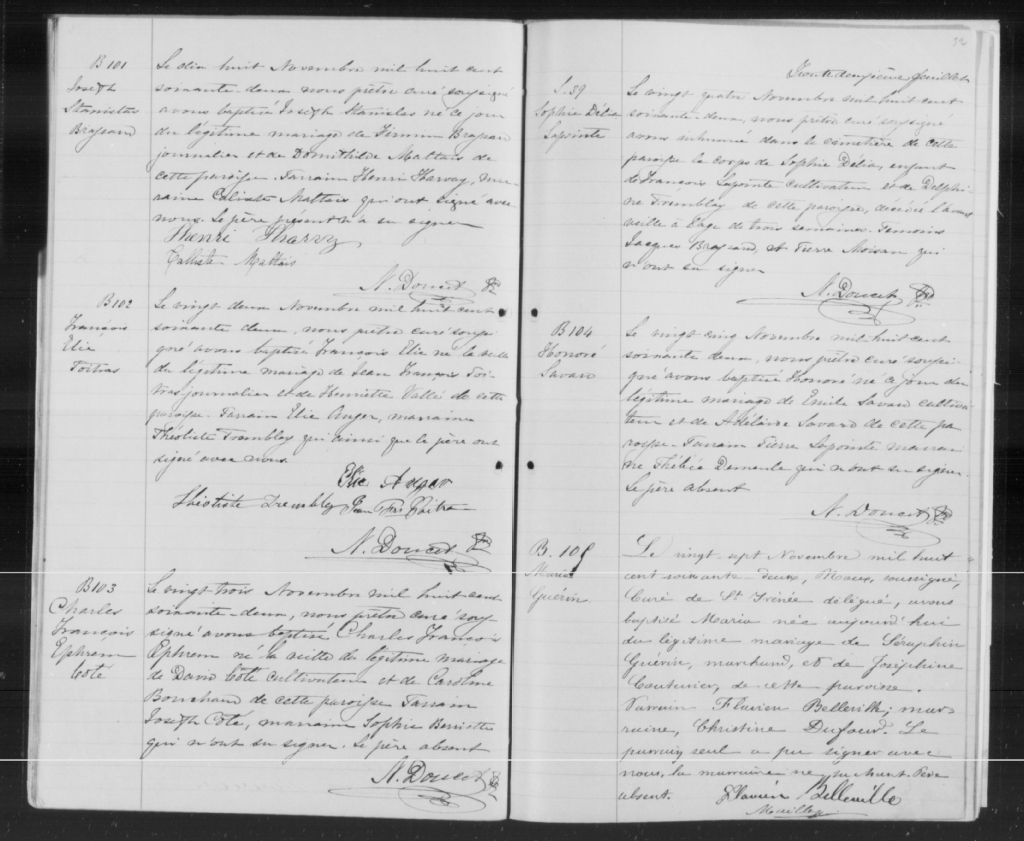 B 101
Joseph
Stanislas
Brassard
Le dix huit Novembre mil huit cent
soixante deux nous prêtre curé soussigné
avons baptisé Joseph Stanislas né ce jour
du légitime mariage de Firmin Brassard
journalier et de Domithilde Maltais de
cette paroisse. Parrain Henri Harvay, mar-
raine Calixte Maltais qui ont signé avec
nous. Le père présent n'a su signer
Henri Harvy
Calliste Maltais
N. Doucet Ptre
B 102
François
Elie
Poitras
Le vingt deux Novembre mil huit cent
soixante deux, nous prêtre curé soussi
gné avons baptisé François Elie né la veille
du légitime mariage de Jean François Poi-
tras journalier et de Henriette Vallé de cette
paroisse. Parrain Elie Auger, marraine
Théotiste Tremblay qui ainsi que le père ont
signé avec nous
Elie Auger
Théotiste Tremblay Jean Frs Poitra
N. Doucet Ptre
B 103
Charles
François
Ephrem
Coté
Le vingt trois Novembre mil huit cent
soixante-deux, nous prêtre curé sous-
signé avons baptisé Charles François
Ephrem né la veille du légitime mariage
de David Coté cultivateur et de Caroline
Bouchard de cette paroisse Parrain
Joseph Coté, marraine Sophie
qui n'ont su signer. Le père absent
N. Doucet Ptre
32
Trente deuxième feuillet
S. 39
Sophie Délia
Lapointe
Le vingt quatre Novembre mil huit cent
soixante-deux, nous prêtre curé soussigné
avons inhumé dans le cimetière de cette
paroisse le corps de Sophie Délia, enfant
de François Lapointe cultivateur et de Delphi
ne Tremblay de cette paroisse, décédée l'avant
veille à l'age de trois semaines. Témoins
Jacques Brassard, et Pierre Moisan qui
n'ont su signer
N. Doucet Ptre
B 104
Honoré
Savard
Le vingt cinq Novembre mil huit cent
soixante deux, nous prêtre curé soussi-
gné avons baptisé Honoré né ce jour du
légitime mariage de Emile Savard cultiva
teur et de Adélaire Savard de cette pa
roisse. Parrain Pierre Lapointe marrai
ne qui n'ont su signer.
Le père absent
N. Doucet Ptre
B. 105
Maria
Guérin
Le vingt sept Novembre mil huit
cent soixante-deux, Nous, soussigné,
Curé de St Irénée délégué, avons
baptisé Maria née aujourd'hui
du légitime mariage de Séraphin
Guérin, marchand, et de Joséphine
Couturier, de cette paroisse.
Parrain Flavien Belleville; mar-
raine, Christine Dufour. Le
parrain seul a pu signer avec
nous, la marraine ne sachant. Père
absent. Flavien Belleville